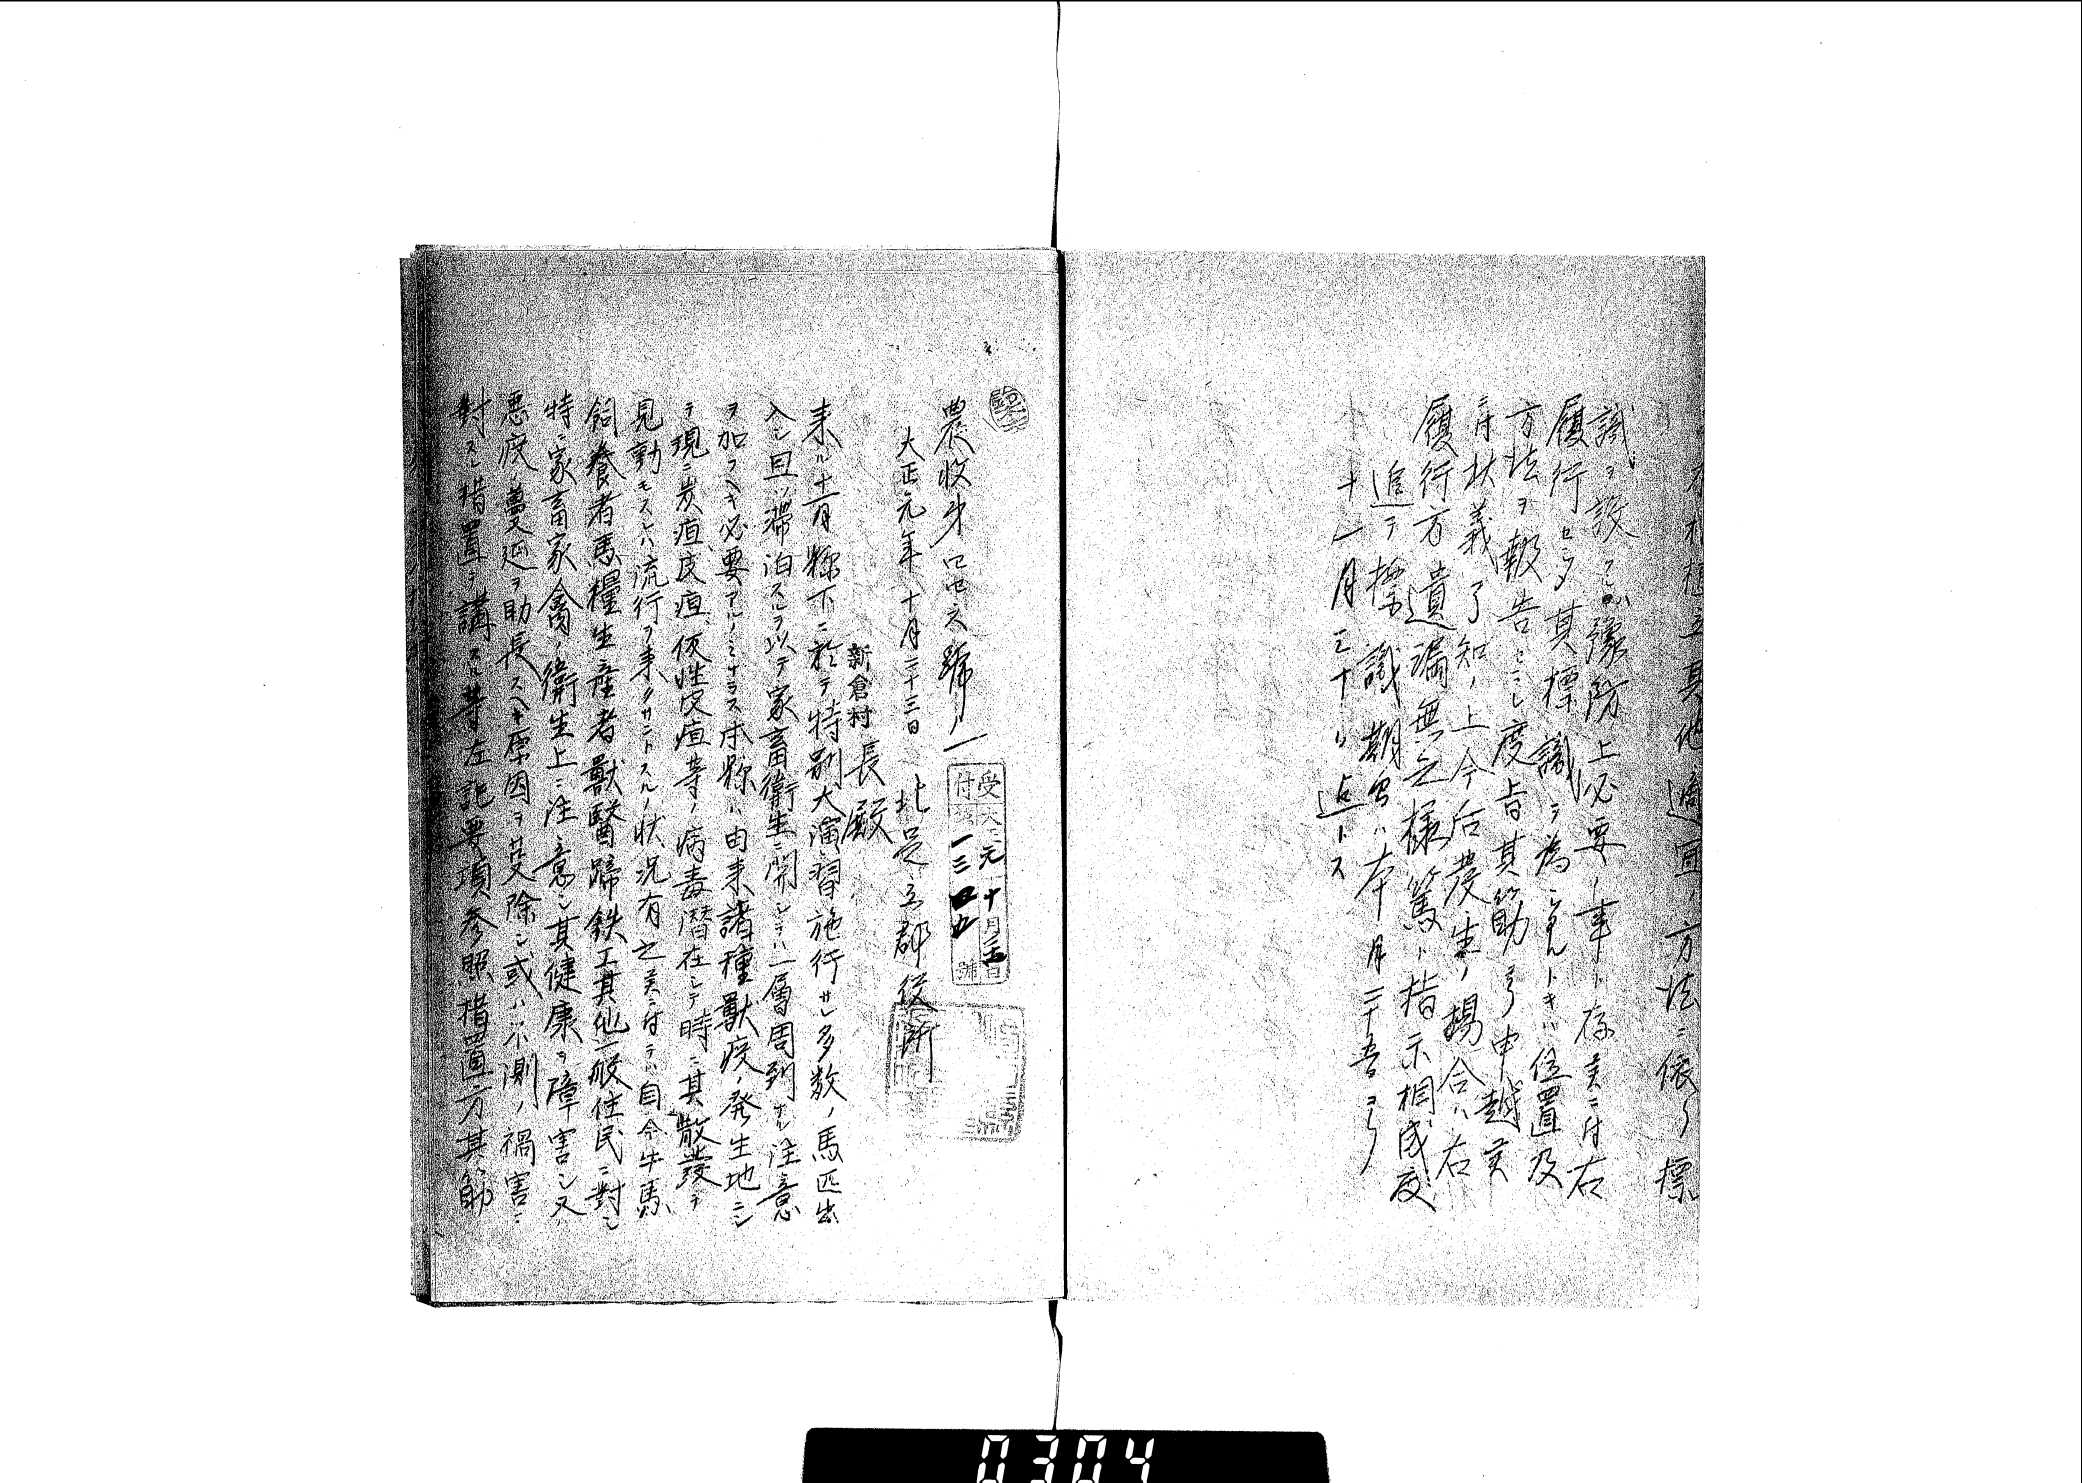 其他適宜ノ方法ニ依リ標
識ヲ設クルハ豫防上必要ノ事ト存候ニ付右
履行セシメ其標識ヲ為シタルトキハ位置及
方法ヲ報告セシム度旨其筋ヨリ申越候
ニ付状義了知ノ上今后發生ノ場合ハ右
履行方遺漏無之様篤ト指示相成度
追テ標識期間ハ本月二十五日ヨリ
十一月三十日迄トス
農收第四四六號ノ一
大正元年十月二十三日 北足立郡役所
新倉村長殿
受付 大正元十月 日 一三四五號
来ル十一月縣下ニ於テ特別大演習施行サレ多数ノ馬匹出
入シ且ツ滞泊スルヲ以テ家畜衛生ニ関シテハ一層周到ナル注意
ヲ加フヘキ必要アルノミナラス本縣ハ由来諸種獣疫ノ発生地ニシ
テ現ニ炭疽、皮疽、仮性皮疽等ノ病毒潜在シテ時ニ其散發ヲ
見動モスレハ流行ヲ来タサントスルノ状況有之候ニ付テハ自今牛馬
飼養者馬糧生産者獣醫蹄鉄工其他一般住民ニ對シ
特ニ家畜家禽ノ衛生上ニ注意シ其健康ヲ障害シ又ハ
悪疫ノ蔓延ヲ助長スヘキ原因ヲ芟除シ或ハ不測ノ禍害ニ
對スル措置ヲ講スル等左記要項参照措置方其筋
0304